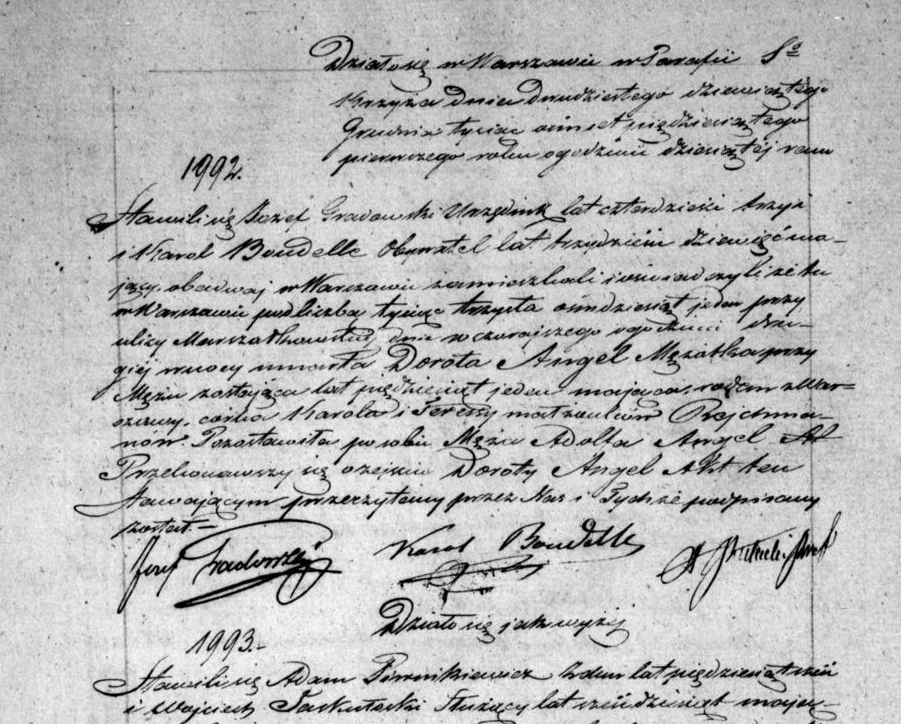 Działo się w Warszawie w Parafii Sº
Krzyża dnia dwudziestego dziewiątego
Grudnia tysiąc ośmset pięćdziesiątego
pierwszego roku o godzinie dziesiątéj rano
1992.
Stawili się Józef Gradowski Urzędnik lat czterdzieści trzy
i Karol Boudelle Obywatel lat trzydzieści dziewięć ma-
jący, obadwaj w Warszawie zamieszkali i oświadczyli że tu
w Warszawie pod liczbą tysiąc trzysta ośmdziesiąt jeden przy
ulicy Marszałkowskiej dnia wczorajszego o godzinie dru-
giéj w nocy umarła Dorota Angel Mężatka przy
Mężu zostająca lat pięćdziesiąt jeden mająca, rodem z War-
szawy, córka Karola i Teressy małżonków Rejchma-
nów. Pozostawiła po sobie Męża Adolfa Angel
Przekonawszy się o zejściu Doroty Angel Akt ten
stawającym przeczytany przez Nas i Tychże podpisany
został.–
Józef Gradowski Karol Boudelle
Działo się jak wyżéj
1993.–
Stawili się Adam lat pięćdziesiąt
i Wojciech Służący lat sześćdziesiąt mając-